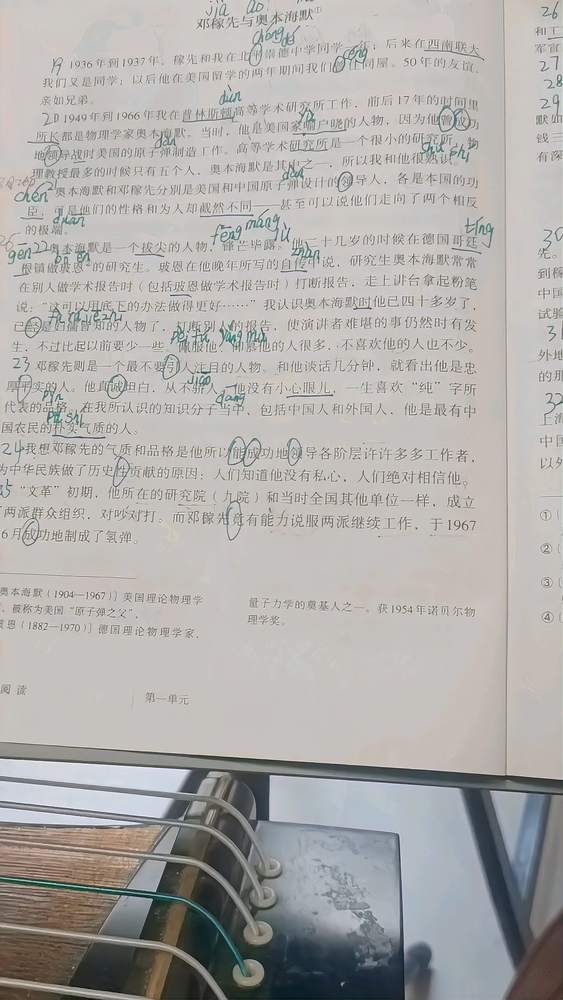 jià ào
邓稼先与奥本海默①
chóng dé
19 1936年到1937年，稼先和我在北平崇德中学同学一年；后来在西南联大
我们又是同学；以后他在美国留学的两年期间我们曾住同屋。50年的友谊，
亲如兄弟。
dùn
20 1949年到1966年我在普林斯顿高等学术研究所工作，前后17年的时间里
所长都是物理学家奥本海默。当时，他是美国家喻户晓的人物，因为他曾成功
地领导战时美国的原子弹制造工作。高等学术研究所是一个很小的研究所，物
理教授最多的时候只有五个人，奥本海默是其中之一，所以我和他很熟识。
shú shí
dàn
奥本海默和邓稼先分别是美国和中国原子弹设计的领导人，各是本国的功
chén
臣，可是他们的性格和为人却截然不同——甚至可以说他们走向了两个相反
的极端。
duān
fēng máng lù
tíng
22 奥本海默是一个拔尖的人物，锋芒毕露。他二十几岁的时候在德国哥廷
gēn
根镇做玻恩②的研究生。玻恩在他晚年所写的自传中说，研究生奥本海默常常
zhuàn
在别人做学术报告时（包括玻恩做学术报告时）打断报告，走上讲台拿起粉笔
说：“这可以用底下的办法做得更好……”我认识奥本海默时他已四十多岁了，
已经是妇孺皆知的人物了，打断别人的报告，使演讲者难堪的事仍然时有发
生，不过比起以前要少一些。佩服他、仰慕他的人很多，不喜欢他的人也不少。
23 邓稼先则是一个最不要引人注目的人物。和他谈话几分钟，就看出他是忠
厚平实的人。他真诚坦白，从不骄人。他没有小心眼儿，一生喜欢“纯”字所
jiāo
代表的品格。在我所认识的知识分子当中，包括中国人和外国人，他是最有中
dāng
pǐn
国农民的朴实气质的人。
pǔ shí
24 我想邓稼先的气质和品格是他所以能成功地领导各阶层许许多多工作者，
为中华民族做了历史性贡献的原因：人们知道他没有私心，人们绝对相信他。
“文革”初期，他所在的研究院（九院）和当时全国其他单位一样，成立
了两派群众组织，对吵对打。而邓稼先竟有能力说服两派继续工作，于1967
6月成功地制成了氢弹。
奥本海默（1904—1967）〕美国理论物理学
，被称为美国“原子弹之父”，
玻恩（1882—1970）〕德国理论物理学家，
量子力学的奠基人之一。获1954年诺贝尔物
理学奖。
阅读
第一单元
26
和工
军官
27
28
29
默如
钱三
有深
30
先。
到稼
中国
试验
31
外地
的那
32
上海
中国
以外
①〔
②〔
③〔
④〔